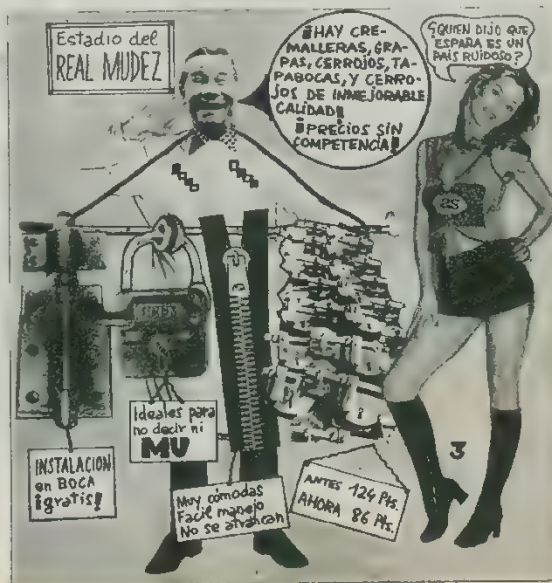 Estadio del
REAL MUDEZ
¡HAY CRE-
MALLERAS, GRA-
PAS, CERROJOS, TA-
PABOCAS, Y CERRO-
JOS DE INMEJORABLE
CALIDAD!
¡PRECIOS SIN
COMPETENCIA!
¿QUIEN DIJO QUE
ESPAÑA ES UN
PAIS RUIDOSO?
INSTALACION
en BOCA
¡gratis!
Ideales para
no decir ni
MU
Muy cómodas
Facil manejo
No se atrancan
ANTES 124 Pts.
AHORA 86 Pts.
3